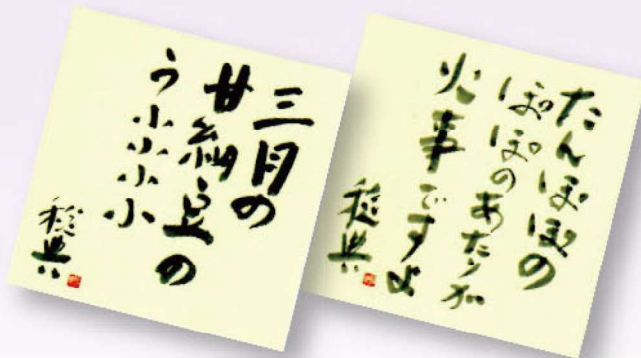 三月の
甘納豆の
うふふふふ
稔典
たんぽぽの
ぽぽのあたりが
火事ですよ
稔典